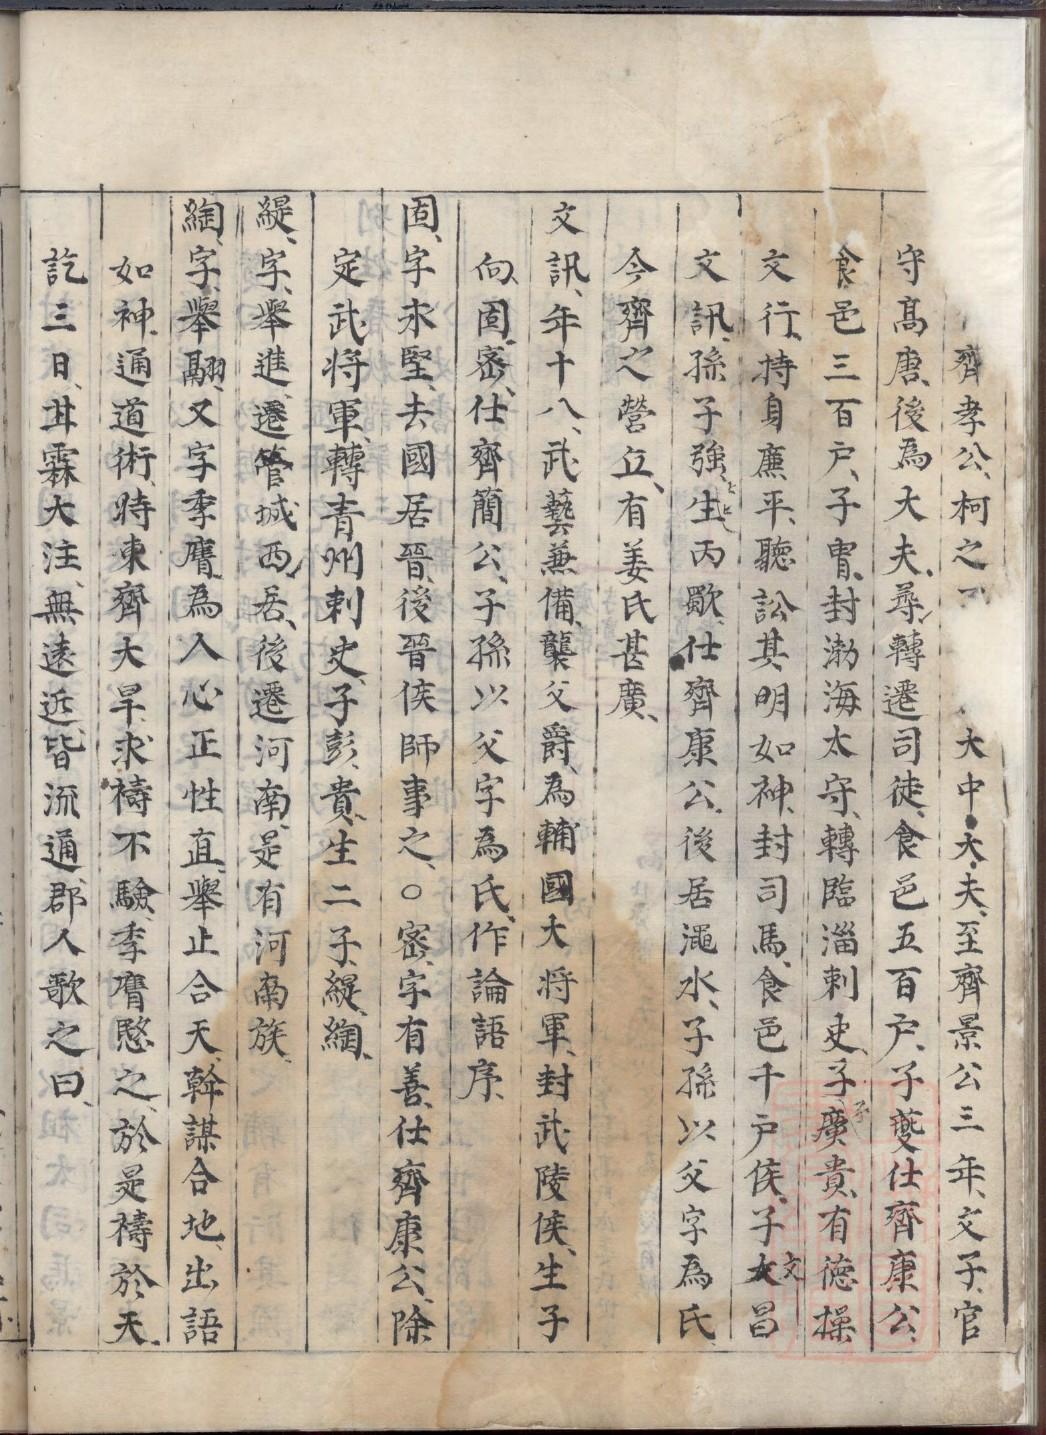 齊孝公、柯之 大中大夫、至齊景公三年、文子、官
守高唐、後為大夫、尋轉遷司徒、食邑五百户、子夔仕齊康公、
食邑三百户、子胄、封渤海太守、轉臨淄刺史、子廣貴、有德操
文行、持身廉平、聽訟其明如神、封司馬、食邑千户侯、子文昌
文訊、孫子強、生丙歜、仕齊康公、後居澠水、子孫以父字為氏
今齊之營丘、有姜氏甚廣、
文訊、年十八、武藝兼備、襲父爵、為輔國大将軍、封武陵侯、生子
向、固、密、仕齊簡公、子孫以父字為氏、作論語序、
固、字永堅、去國居晉、後晉侯師事之、○密、字有善、仕齊康公、除
定武将軍、轉青州刺史、子彭、貴、生二子、緹、綯、
緹、字、舉進、遷管城西居、後遷河南、是有河南族、
綯、字、舉翮、又字季膺、為人心正性直、舉止合天、幹謀合地、出語
如神、通道術、時東齊大旱、求禱不驗、季膺愍之、於是禱於天、
訖三日、甘霖大注、無遠近、皆流通、郡人歌之曰、